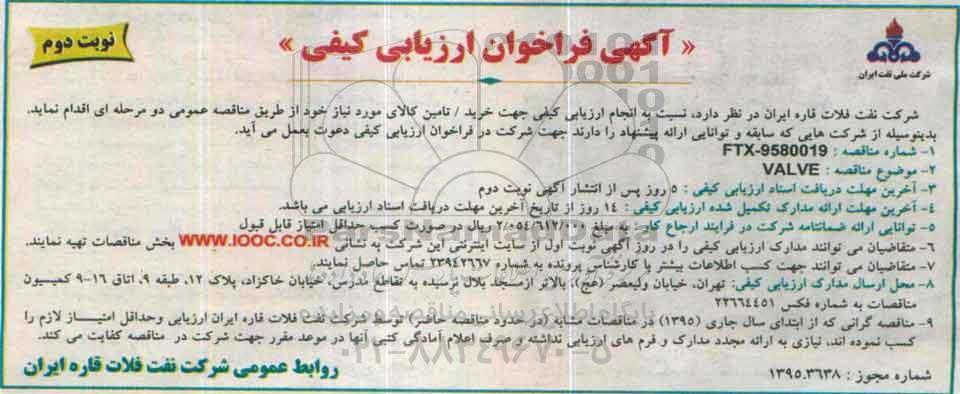 « آگهی فراخوان ارزیابی کیفی »
نوبت دوم
شرکت ملی نفت ایران
شرکت نفت فلات قاره ایران در نظر دارد، نسبت به انجام ارزیابی کیفی جهت خرید / تامین کالای مورد نیاز خود از طریق مناقصه عمومی دو مرحله ای اقدام نماید.
بدینوسیله از شرکت هایی که سابقه و توانایی ارائه پیشنهاد را دارند جهت شرکت در فراخوان ارزیابی کیفی دعوت بعمل می آید.
۱- شماره مناقصه : FTX-9580019
۲- موضوع مناقصه : VALVE
۳- آخرین مهلت دریافت اسناد ارزیابی کیفی : ۵ روز پس از انتشار آگهی نوبت دوم
۴- آخرین مهلت ارائه مدارک تکمیل شده ارزیابی کیفی : ۱۴ روز از تاریخ آخرین مهلت دریافت اسناد ارزیابی می باشد.
۵- توانایی ارائه ضمانتنامه شرکت در فرایند ارجاع کار : به مبلغ ریال در صورت کسب حداقل امتیاز قابل قبول
۶- متقاضیان می توانند مدارک ارزیابی کیفی را در روز آگهی نوبت اول از سایت اینترنتی این شرکت به نشانی WWW.IOOC.CO.IR بخش مناقصات تهیه نمایند.
۷- متقاضیان می توانند جهت کسب اطلاعات بیشتر با کارشناس پرونده به شماره ۲۳۹۴۲۶۶۷ تماس حاصل نمایند.
۸- محل ارسال مدارک ارزیابی کیفی: تهران، خیابان ولیعصر (عج)، بالاتر از مسجد بلال نرسیده به تقاطع مدرس، خیابان خاکزاد، پلاک ۱۲، طبقه ۹، اتاق ۱۶-۹ کمیسیون
مناقصات به شماره فکس ۲۲۶۶۴۴۵۱
۹- مناقصه گرانی که از ابتدای سال جاری (۱۳۹۵) در مناقصات مشابه (در حدود مناقصه حاضر) توسط شرکت نفت فلات قاره ایران ارزیابی وحداقل امتیاز لازم را
کسب نموده اند، نیازی به ارائه مجدد مدارک و فرم های ارزیابی نداشته و صرف اعلام آمادگی کتبی آنها در موعد مقرر جهت شرکت در مناقصه کفایت می کند.
شماره مجوز : ۱۳۹۵.۳۶۳۸
روابط عمومی شرکت نفت فلات قاره ایران